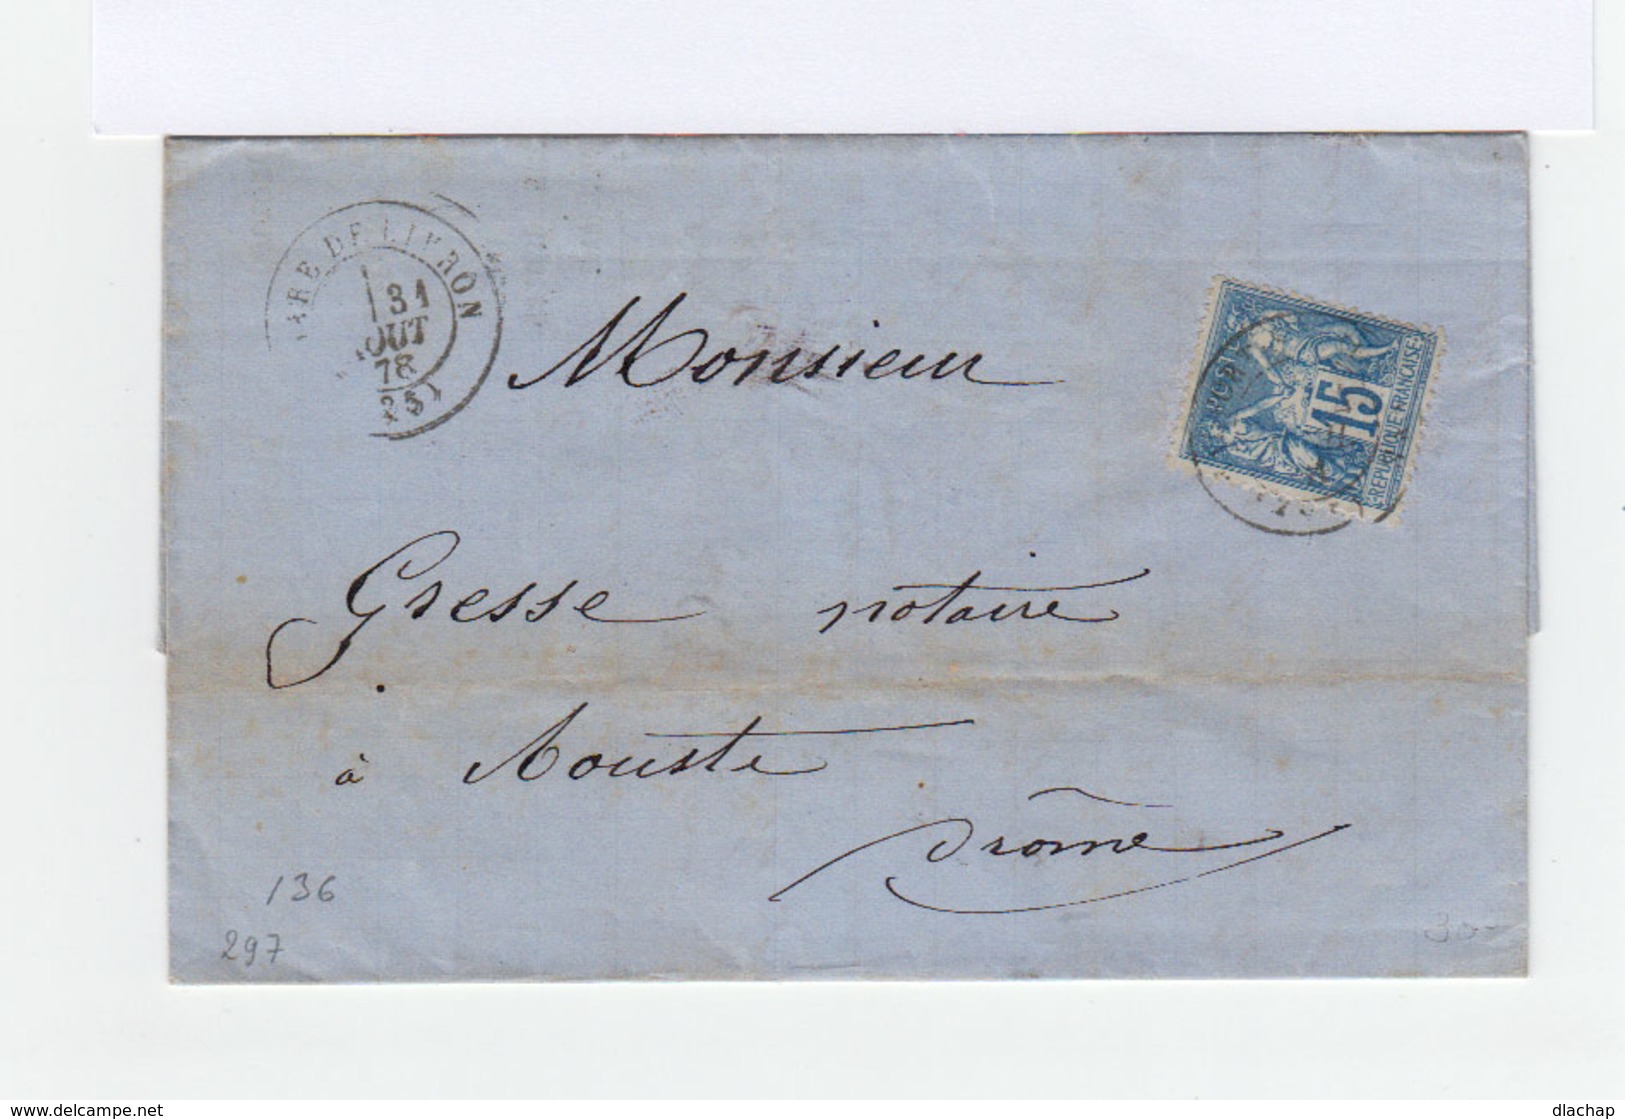 GARE DE LIVRON
31
AOUT
78
(25)
Monsieur
15
REPUBLIQUE FRANCAISE
Gresse notaire
à Aouste
Drôme
136
297
30
www.delcampe.net
dlachap